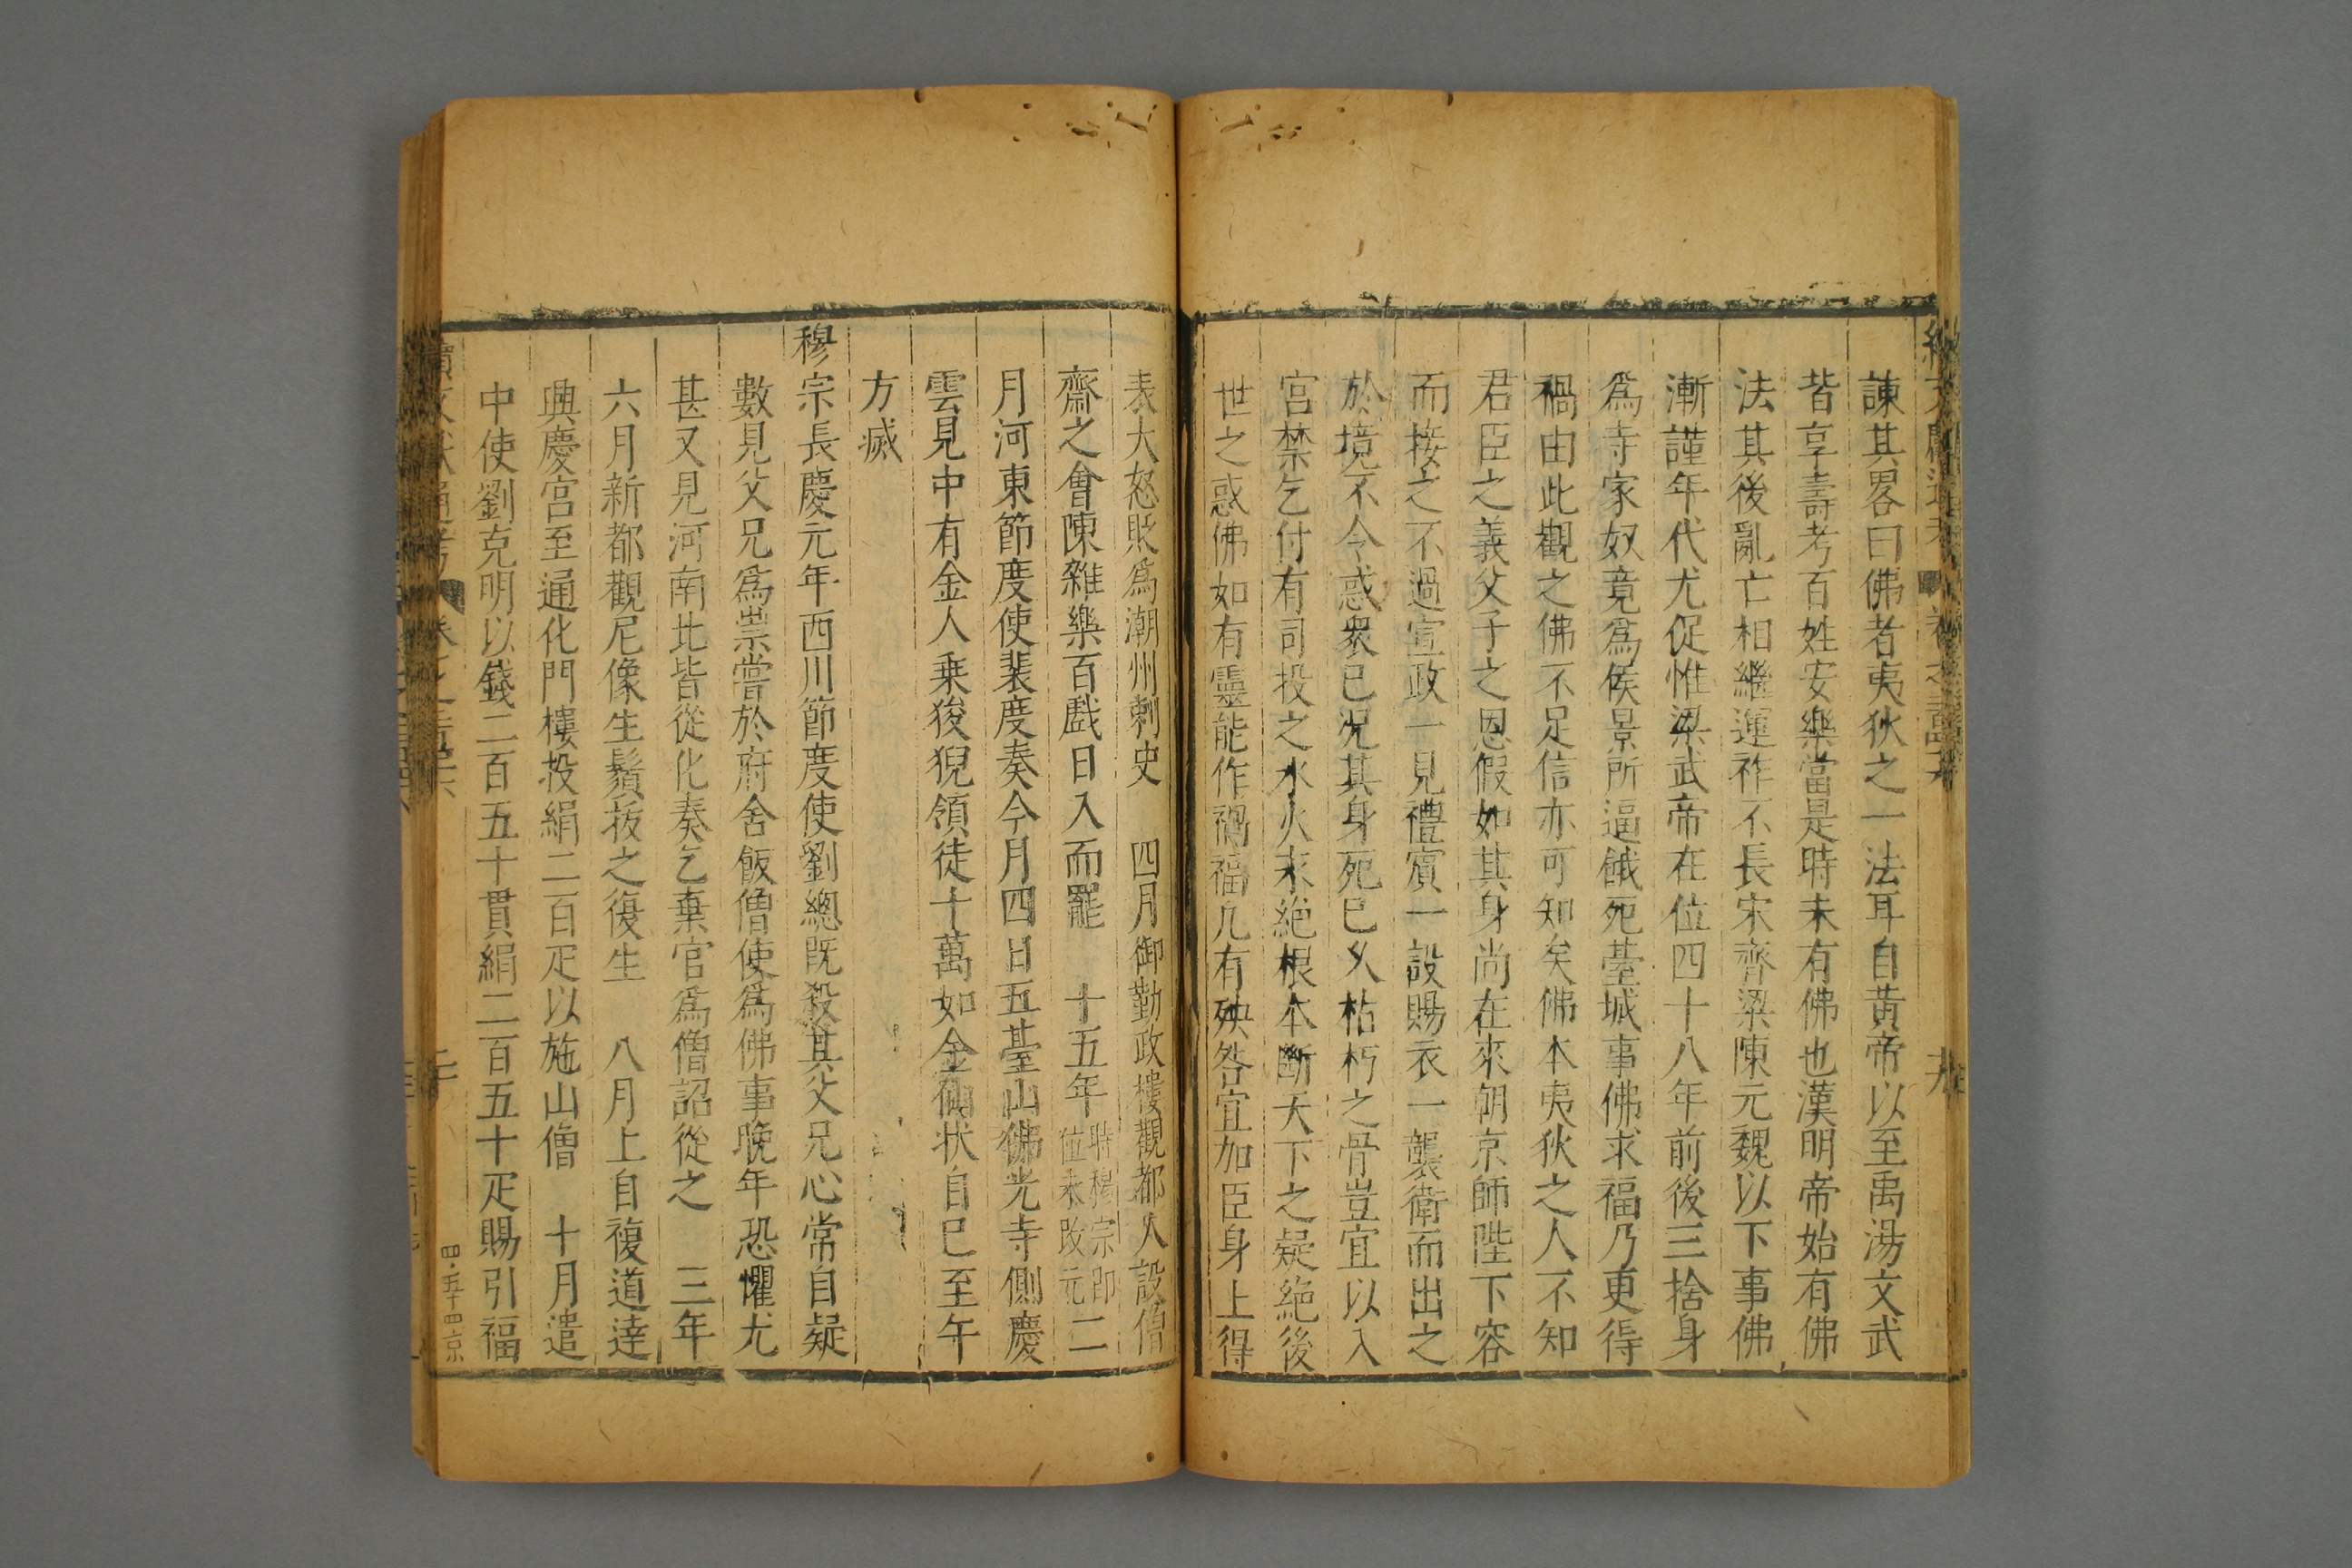 諫其畧曰佛者夷狄之一法耳自黃帝以至禹湯文武
皆享壽考百姓安樂當是時未有佛也漢明帝始有佛
法其後亂亡相繼運祚不長宋齊梁陳元魏以下事佛
漸謹年代尤促惟梁武帝在位四十八年前後三捨身
爲寺家奴竟爲侯景所逼餓死臺城事佛求福乃更得
禍由此觀之佛不足信亦可知矣佛本夷狄之人不知
君臣之義父子之恩假如其身尚在來朝京師陛下容
而接之不過宣政一見禮賓一設賜衣一襲衛而出之
於境不令惑衆已況其身死已久枯朽之骨豈宜以入
宮禁乞付有司投之水火永絕根本斷天下之疑絕後
世之惑佛如有靈能作禍福凡有殃咎宜加臣身上得
表大怒貶爲潮州刺史　四月御勤政樓觀都人設僧
齋之會陳雜樂百戲日入而罷　十五年時穆宗即位未改元二
月河東節度使裴度奏今月四日五臺山佛光寺側慶
雲見中有金人乗狻猊領徒十萬如金仙狀自巳至午
方滅
穆宗長慶元年西川節度使劉總既殺其父兄心常自疑
數見父兄爲祟嘗於府舍飯僧使爲佛事晚年恐懼尤
甚又見河南北皆從化奏乞棄官爲僧詔從之　三年
六月新都觀尼像生鬚拔之復生　八月上自複道逹
興慶宮至通化門樓投絹二百疋以施山僧　十月遣
中使劉克明以錢二百五十貫絹二百五十疋賜引福